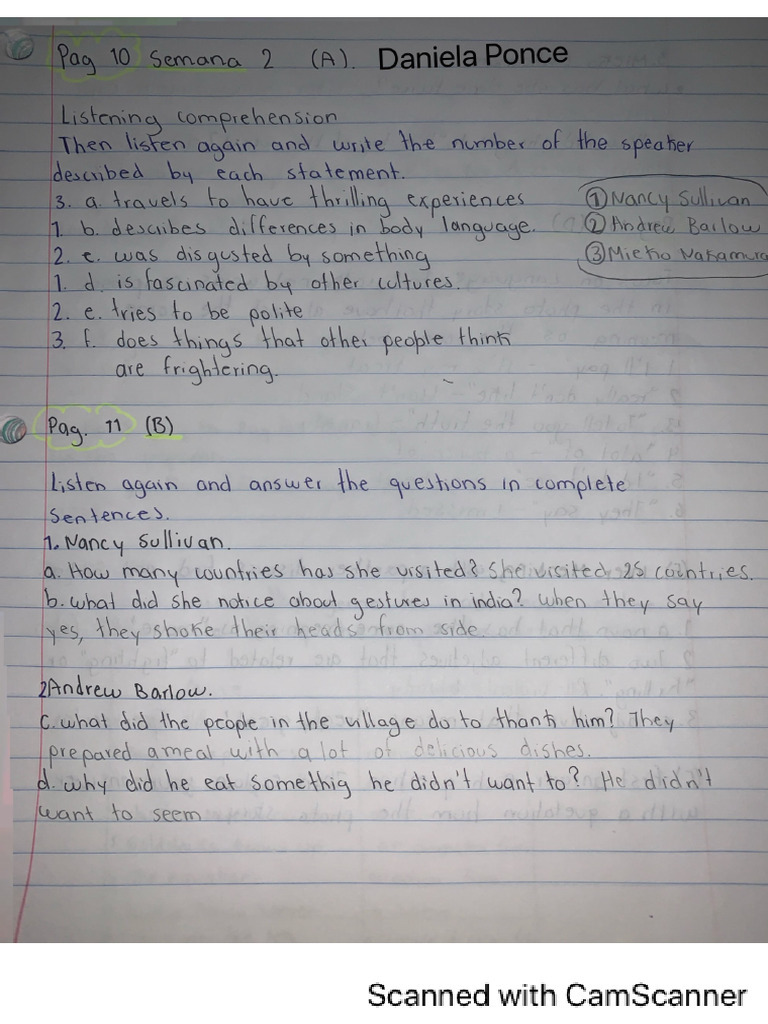 Pag 10 Semana 2 (A). Daniela Ponce
Listening comprehension
Then listen again and write the number of the speaker
described by each statement.
3. a. travels to have thrilling experiences
1. b. describes differences in body language.
2. c. was disgusted by something
1. d. is fascinated by other cultures.
2. e. tries to be polite
3. f. does things that other people think
are frightering.
① Nancy Sullivan
② Andrew Barlow
③ Mieko Nakamura
Pag. 11 (B)
Listen again and answer the questions in complete
sentences.
1. Nancy Sullivan.
a. How many countries has she visited? She visited 25 countries.
b. what did she notice about gestures in india? when they say
yes, they shoke their heads from side.
2 Andrew Barlow.
c. what did the people in the village do to thank him? They
prepared a meal with a lot of delicious dishes.
d. why did he eat somethig he didn't want to? He didn't
want to seem
Scanned with CamScanner